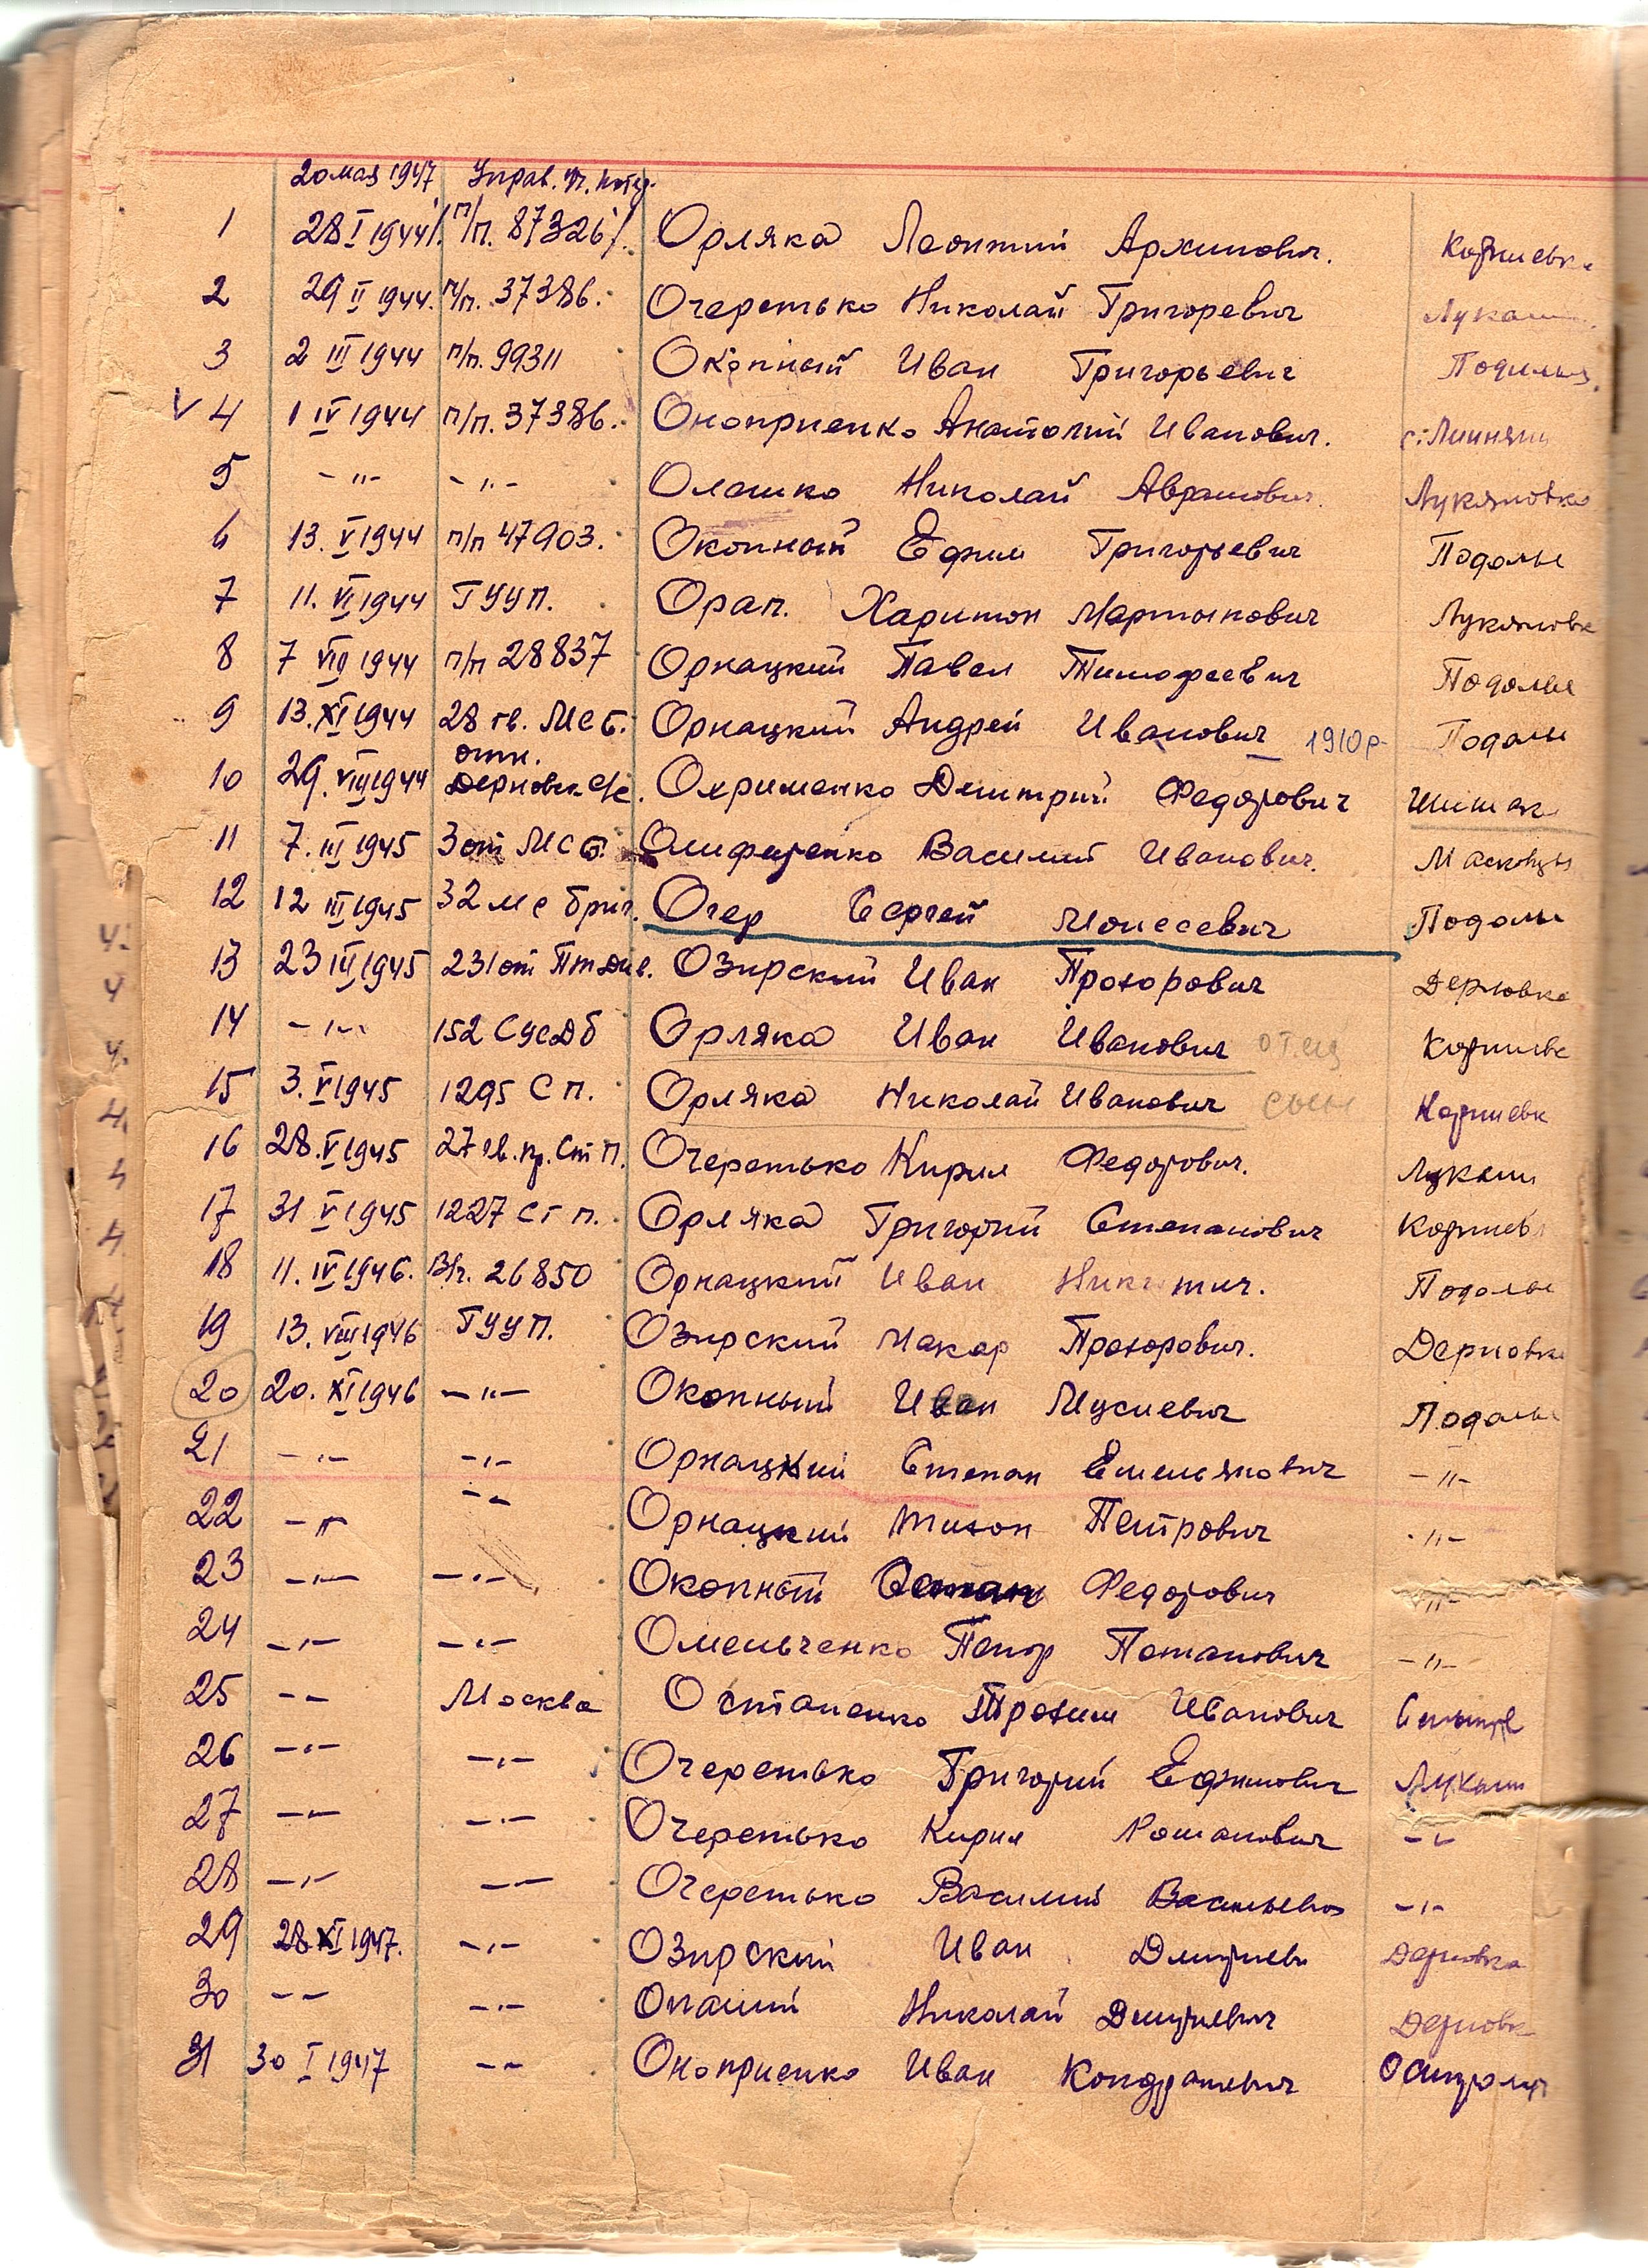 20 мая 1947 Управ. п. потер.
1 28 I 1944 п/п. 87326 Орляка Леонтий Архипович. Корниевка
2 29 II 1944. п/п. 37386. Очеретько Николай Григоревич Лукаши
3 2 III 1944 п/п. 99311 Окопный Иван Григорьевич Подилья
V 4 1 IV 1944 п/п. 37386. Оноприенко Анатолий Иванович.
5 -"- -"- Олешко Николай Аврамович. Лукяновка
6 13. V 1944 п/п 47903. Окопный Ефим Григорьевич Подолье
7 11. VI 1944 ГУУП. Орап. Харитон Мартынович Лукяновк
8 7 VIII 1944 п/п 28837 Орнацкий Павел Тимофеевич Подолье
9 13. XI 1944 28 гв. МСБ. Орнацкий Андрей Иванович 1910 р Подолье
10 29. VIII 1944 Дерновск с/с. Охрименко Дмитрий Федорович
11 7. III 1945 3 от МСБ. Василий Иванович. Масковцы
12 12 III 1945 32 мс бриг. Очер Сергей Моисеевич Подолье
13 23 III 1945 231 от Озирский Иван Прохорович Дерновка
14 -"- 152 Орляка Иван Иванович отец Корниевк
15 3. V 1945 1295 СП. Орляка Николай Иванович сын Корниевк
16 28. V 1945 27 гв. Ст П. Очеретько Кирил Федорович. Лукаши
17 31 V 1945 1227 Ст п. Орляка Григорий Степанович Корниев
18 11. IV 1946. В/ч. 26850 Орнацкий Иван Никитич. Подолье
19 13. VIII 1946 ГУУП. Озирский Макар Прохорович. Дерновка
20 20. XI 1946 -"- Окопный Иван Мусиевич Подолье
21 -"- -"- Орнацкий Степан Емельянович -"-
22 -"- -"- Орнацкий Тихон Петрович -"-
23 -"- -"- Окопный Остап Федорович -"-
24 -"- -"- Омельченко Петр Потапович -"-
25 -"- Москва Остапенко Трохим Иванович
26 -"- -"- Очеретько Григорий Ефимович Лукаши
27 -"- -"- Очеретько Кирил Романович -"-
28 -"- -"- Очеретько Василий Васильевич -"-
29 28 XI 1947. -"- Озирский Иван Дмитриев Дерновка
30 -"- -"- Николай Дмитриевич Дерновк
31 30 I 1947 -"- Оноприенко Иван Кондратьевич